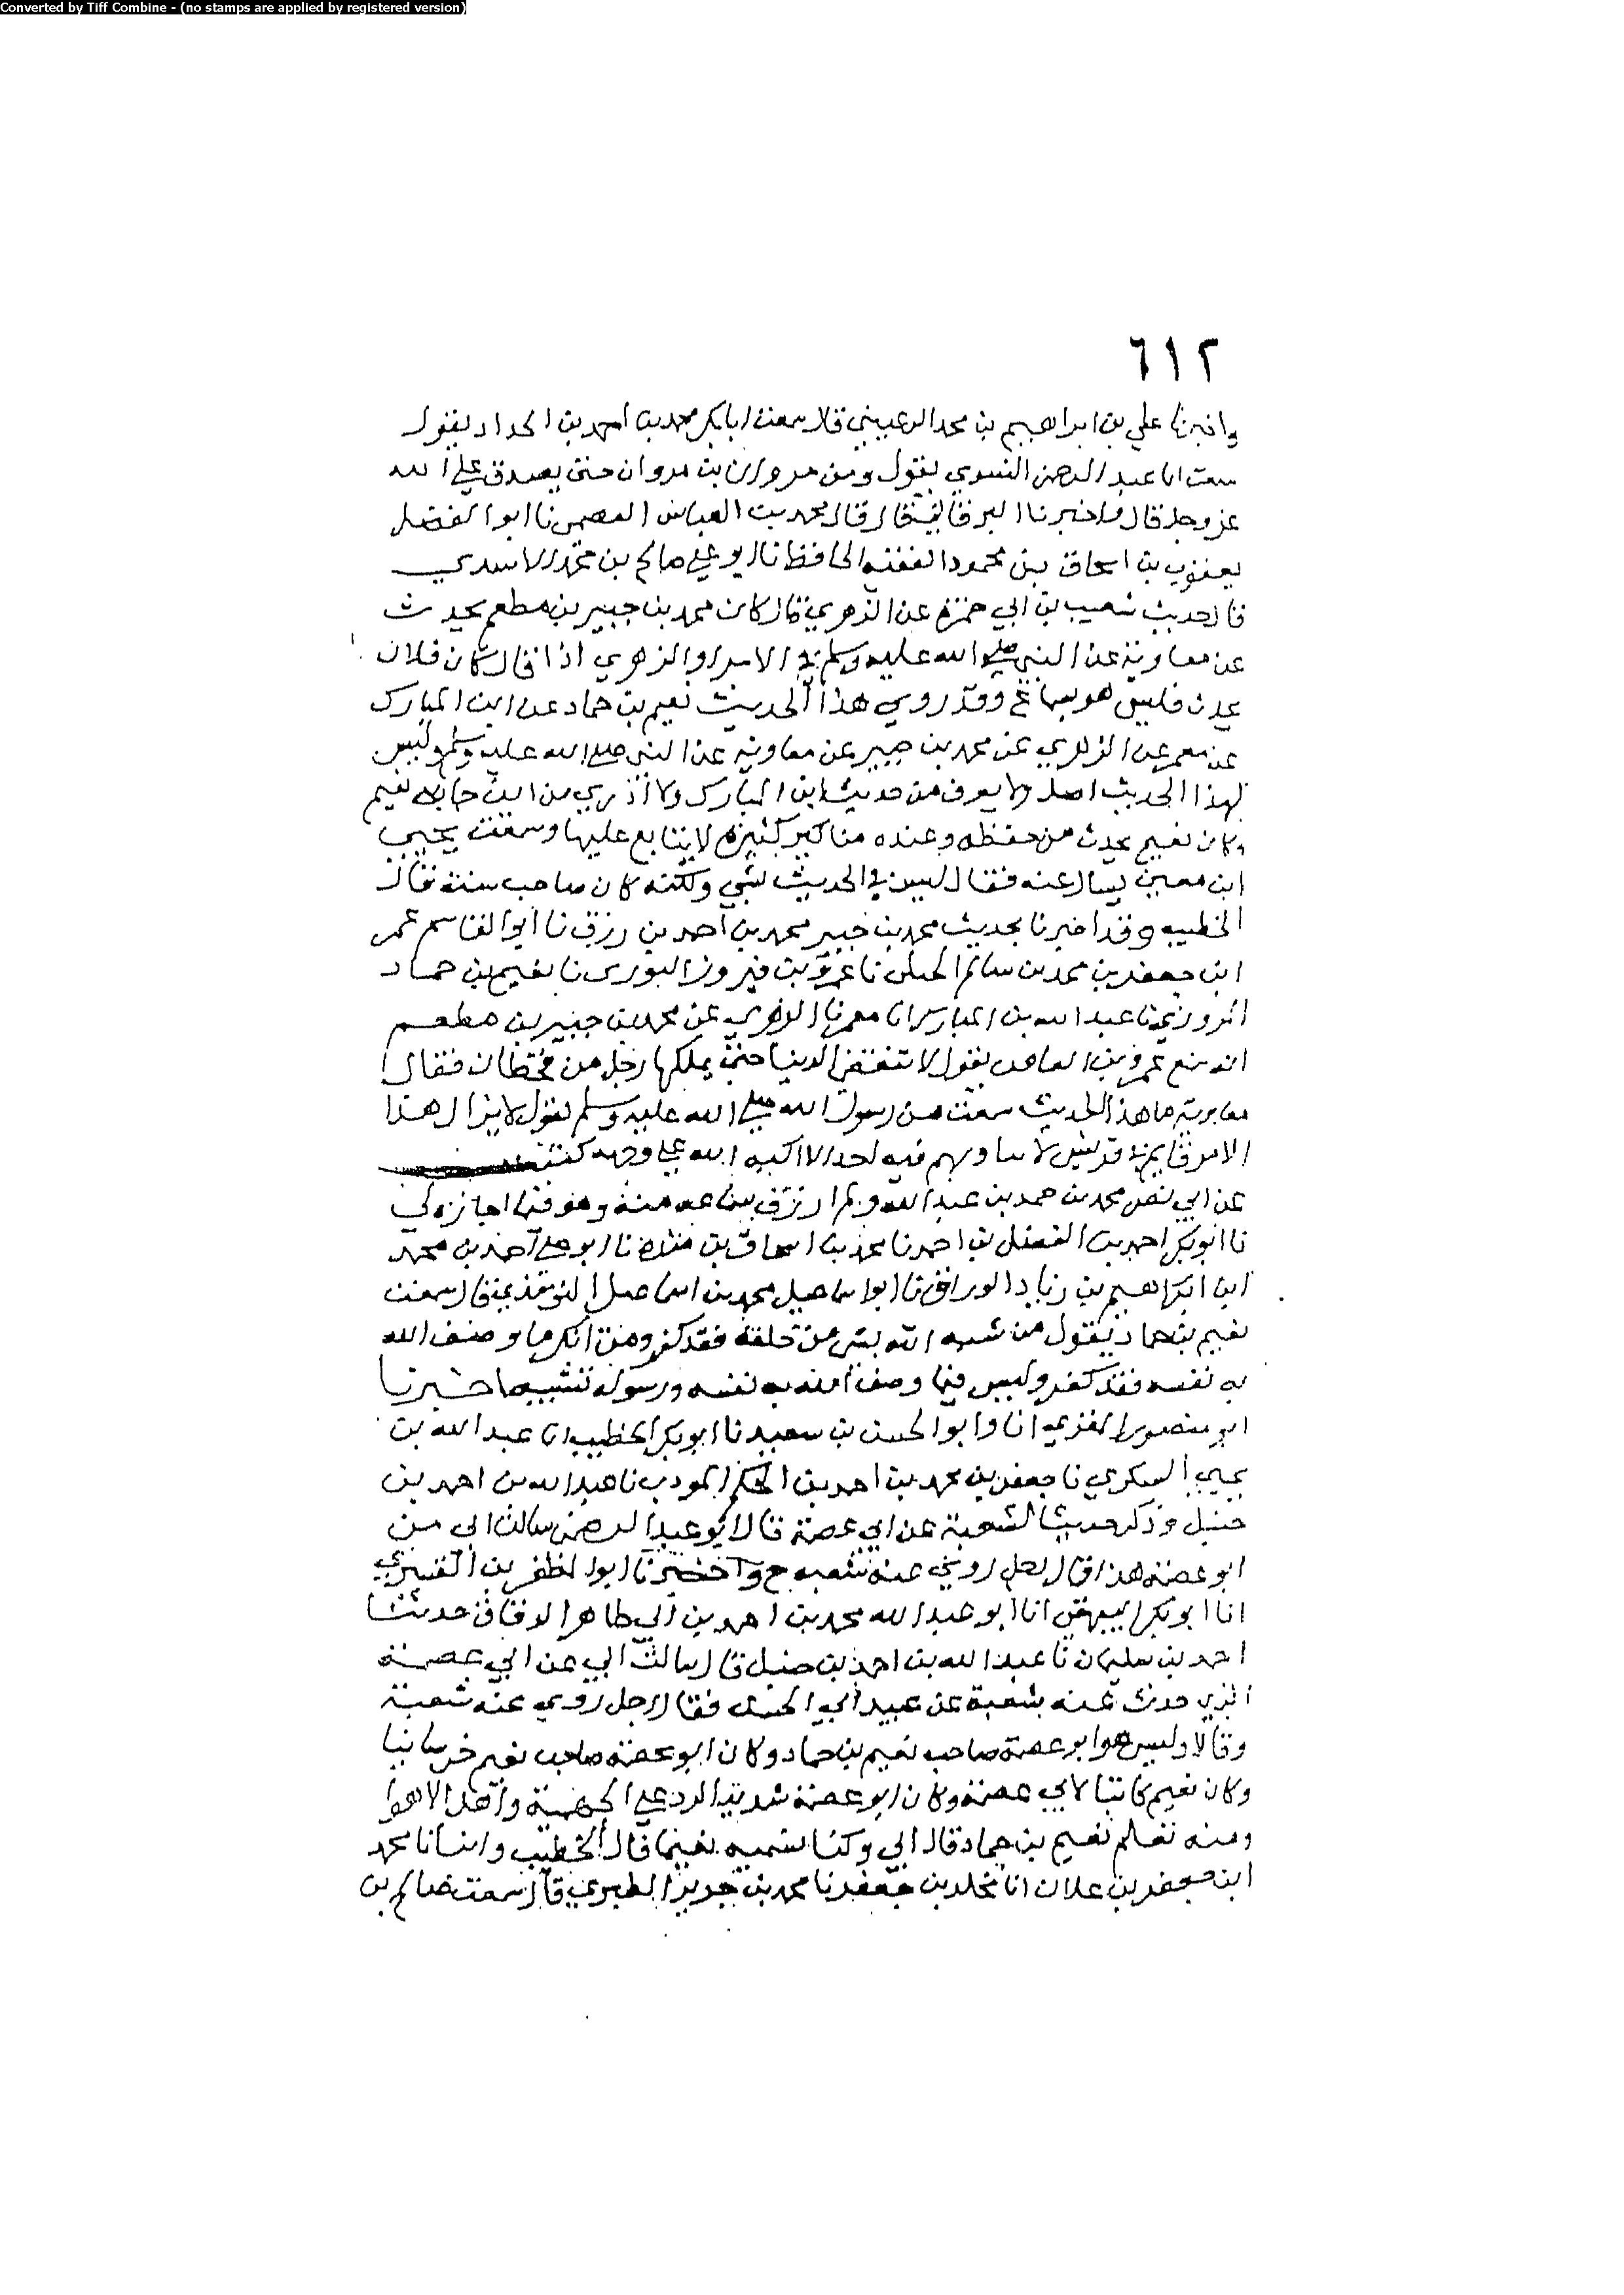 Converted by Tiff Combine - (no stamps are applied by registered version)
٦١٢
واخبرنا علي بن ابراهيم بن محمد الرعيني قالا سمعت ابا بكر محمد بن احمد بن الحداد يقول
سمعت ابا عبد الرحمن النسوي يقول ومن مروان بن مروان حتى يصدق على الله
عز وجل قال واخبرنا البرقاني قال قال محمد بن العباس العصمي نا ابو الفضل
يعقوب بن اسحاق بن محمود الفقيه الحافظ نا ابو علي صالح بن محمد الاسدي
قال حديث شعيب بن ابي حمزة عن الزهري قال كان محمد بن جبير بن مطعم يحدث
عن معاوية عن النبي صلى الله عليه وسلم في الامراء والزهري اذا قال كان فلان
يحدث فليس هو سماع وقد روي هذا الحديث نعيم بن حماد عن ابن المبارك
عن معمر عن الزهري عن محمد بن جبير عن معاوية عن النبي صلى الله عليه وسلم وليس
لهذا الحديث اصل ولا يعرف من حديث ابن المبارك ولا ادري من اين جا به نعيم
وكان نعيم يحدث من حفظه وعنده مناكير كثيرة لا يتابع عليها وسمعت يحيى
ابن معين يسال عنه فقال ليس في الحديث بشي ولكنه كان صاحب سنة فقال
الخطيب وقد اخبرنا بحديث محمد بن جبير محمد بن احمد بن رزق نا ابو القاسم عمر
ابن جعفر بن محمد بن سالم الحبلي نا عمرو بن فيروز البوري نا نعيم بن حماد
المروزي نا عبد الله بن المبارك انا معمر نا الزهري عن محمد بن جبير بن مطعم
انه سمع عمرو بن العاص يقول لا تنقضي الدنيا حتى يملكها رجل من قحطان فقال
معاوية ما هذا الحديث سمعت من رسول الله صلى الله عليه وسلم يقول لا يزال هذا
الامر قايم في قريش لا يناويهم فيه احد الا اكبه الله على وجهه كتب
عن ابي نصر محمد بن حمد بن عبد الله وبم ارزق بيناعه منه وهو فيما اجازه لي
نا ابو بكر احمد بن الفضل بن احمد نا محمد بن اسحاق بن منده نا ابو علي احمد بن محمد
ابن ابراهيم بن زياد الوراق نا ابو اسماعيل محمد بن اسماعيل الترمذي قال سمعت
نعيم بن حماد يقول من شبه الله بشي من خلقه فقد كفر ومن انكر ما وصف الله
به نفسه فقد كفر وليس فيما وصف الله به نفسه ورسوله تشبيه اخبرنا
ابو منصور المقري انا وابو الحسن بن سعيد نا ابو بكر الخطيب انا عبد الله بن
يحيى السكري نا جعفر بن محمد بن احمد بن الحكم المودب نا عبد الله بن احمد بن
حنبل وذكر حديثا لشعبة عن ابي عصمة قال ابو عبد الرحمن سالت ابي من
ابو عصمة هذا قال رجل روى عنه شعبه ح واخبرنا ابو المظفر بن القشيري
انا ابو بكر البيهقي انا ابو عبد الله محمد بن احمد بن ابي طاهر الدقاق حدثنا
احمد بن سليمان نا عبد الله بن احمد بن حنبل قال سالت ابي عن ابي عصمة
الذي حدث عنه شعبة عن عبيد ابي الحسن فقال رجل روى عنه شعبة
وقالا وليس هو ابو عصمة صاحب نعيم بن حماد وكان ابو عصمة صاحب نعيم خرسانيا
وكان نعيم كاتبا لابي عصمة وكان ابو عصمة شديد الرد على الجهمية واهل الاهوا
ومنه تعلم نعيم بن حماد قال ابي وكنا نسميه نعيما قال الخطيب وانبانا محمد
ابن جعفر بن علان انا مخلد بن جعفر نا محمد بن جرير الطبري قال سمعت صالح بن